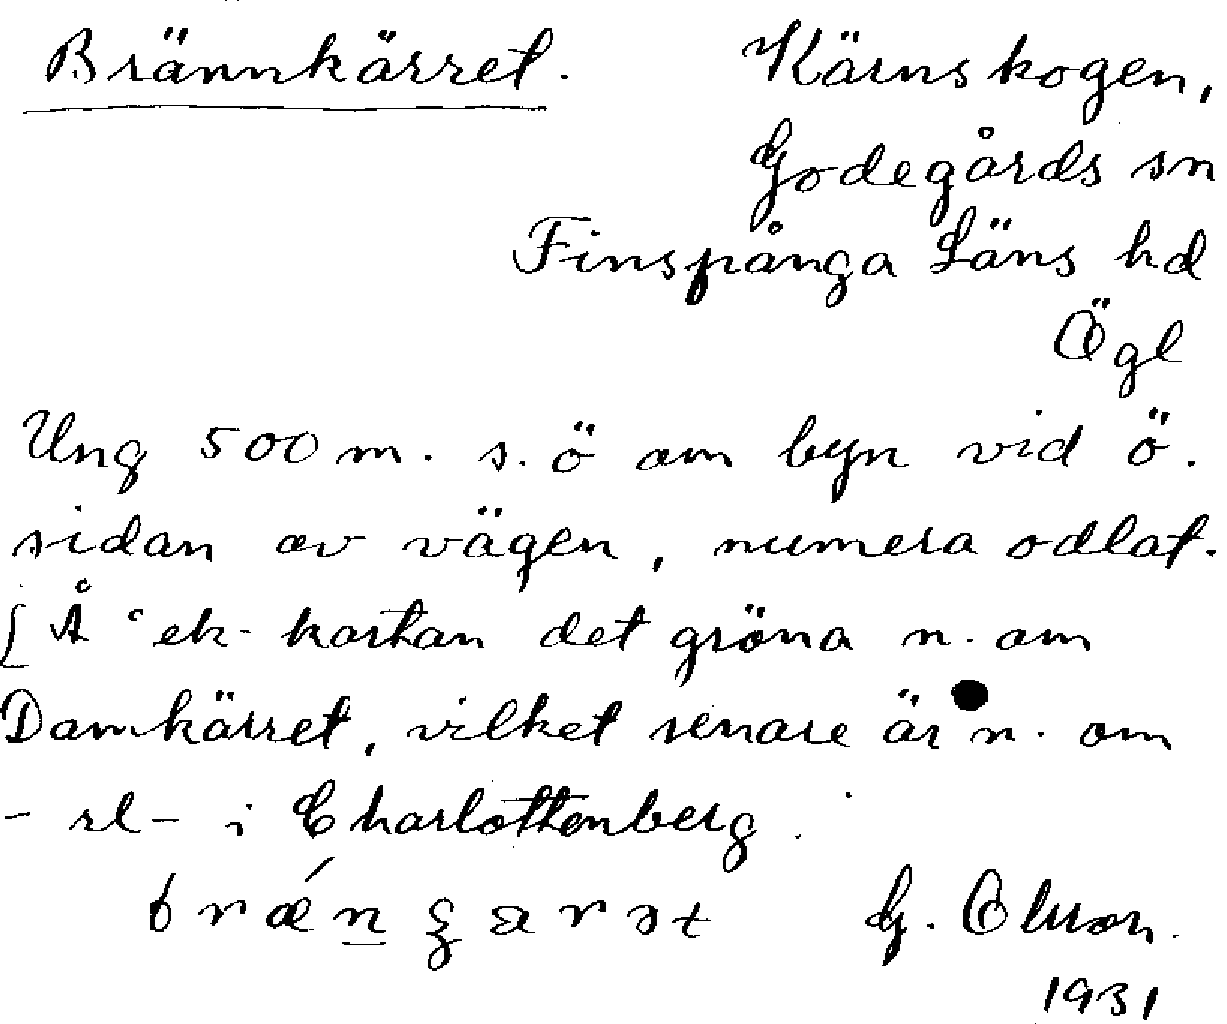 Brännkärret. Kärnskogen,
Godegårds sn
Finspånga Läns hd
Ögl
Ung 500 m. s.ö om byn vid ö.
sidan av vägen, numera odlat.
[Å ek-kartan det gröna n. om
Damkärret, vilket senare är n. om
- rl - i Charlottenberg.
G. Olsson.
1931